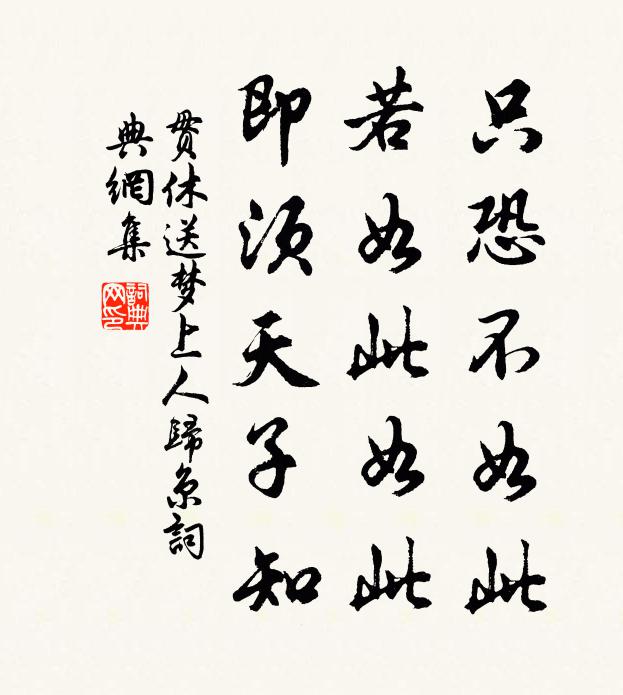 只恐不如此
若如此如此
即須天子知
貫休送梦上人歸京詞
典網集
詞典
网印